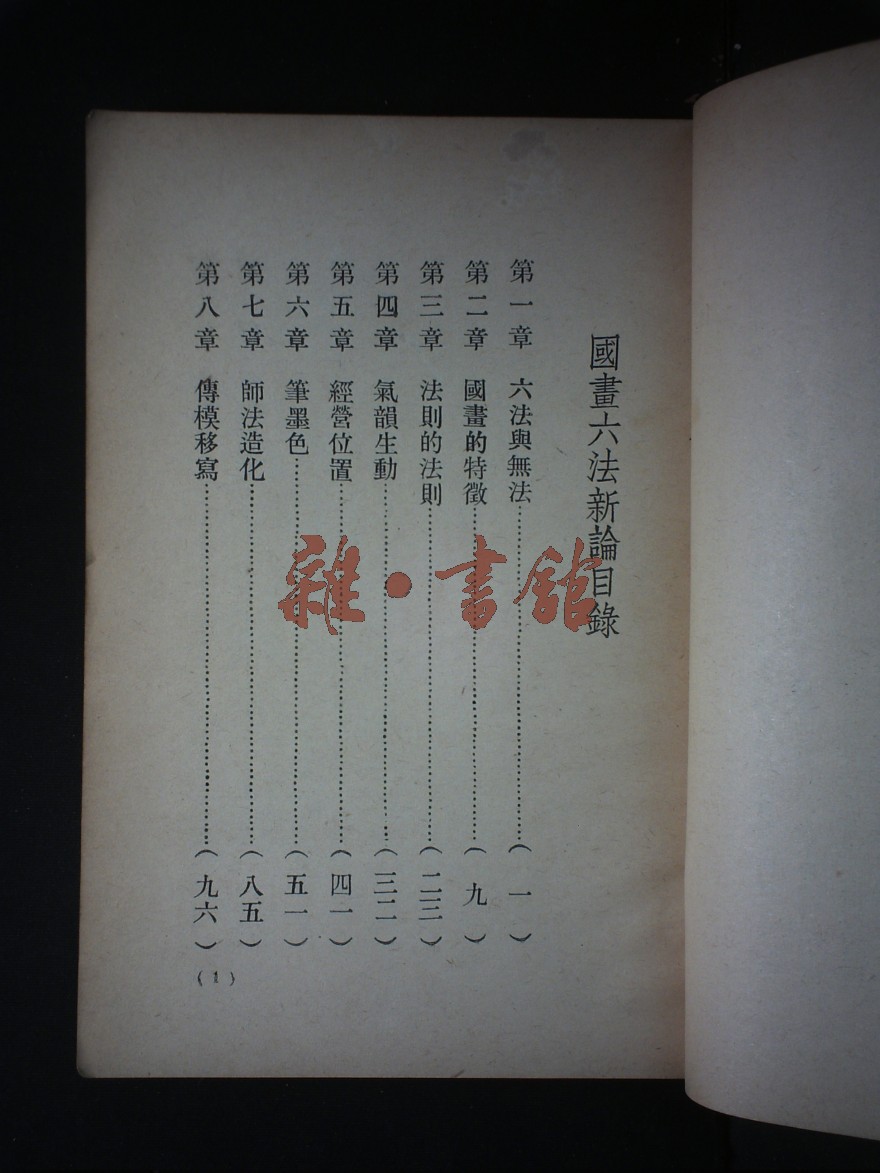 國畫六法新論目錄
第一章 六法與無法……………………(一)
第二章 國畫的特徵……………………(九)
第三章 法則的法則……………………(二三)
第四章 氣韻生動……………………(三二)
第五章 經營位置……………………(四一)
第六章 筆墨色……………………(五一)
第七章 師法造化……………………(八五)
第八章 傳模移寫……………………(九六)
(1)
雜·書館